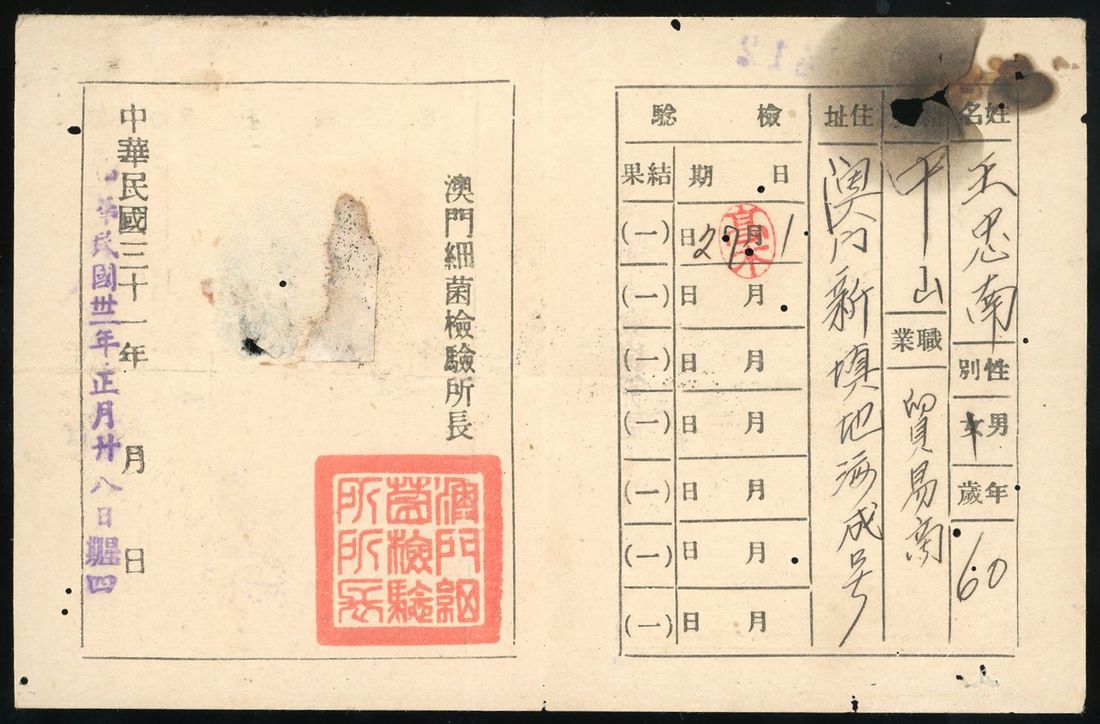 姓名
王忠南
性別
男女
年歲
60
中山
職業
貿易商
住址
澳门新填地
成号
檢驗
日期
結果
1月27日
(一)
月日
(一)
月日
(一)
月日
(一)
月日
(一)
月日
(一)
月日
(一)
澳門細菌檢驗所長
澳門細菌檢驗所所長
中華民國三十一年 月 日
中華民國卅二年正月廿八日星期四